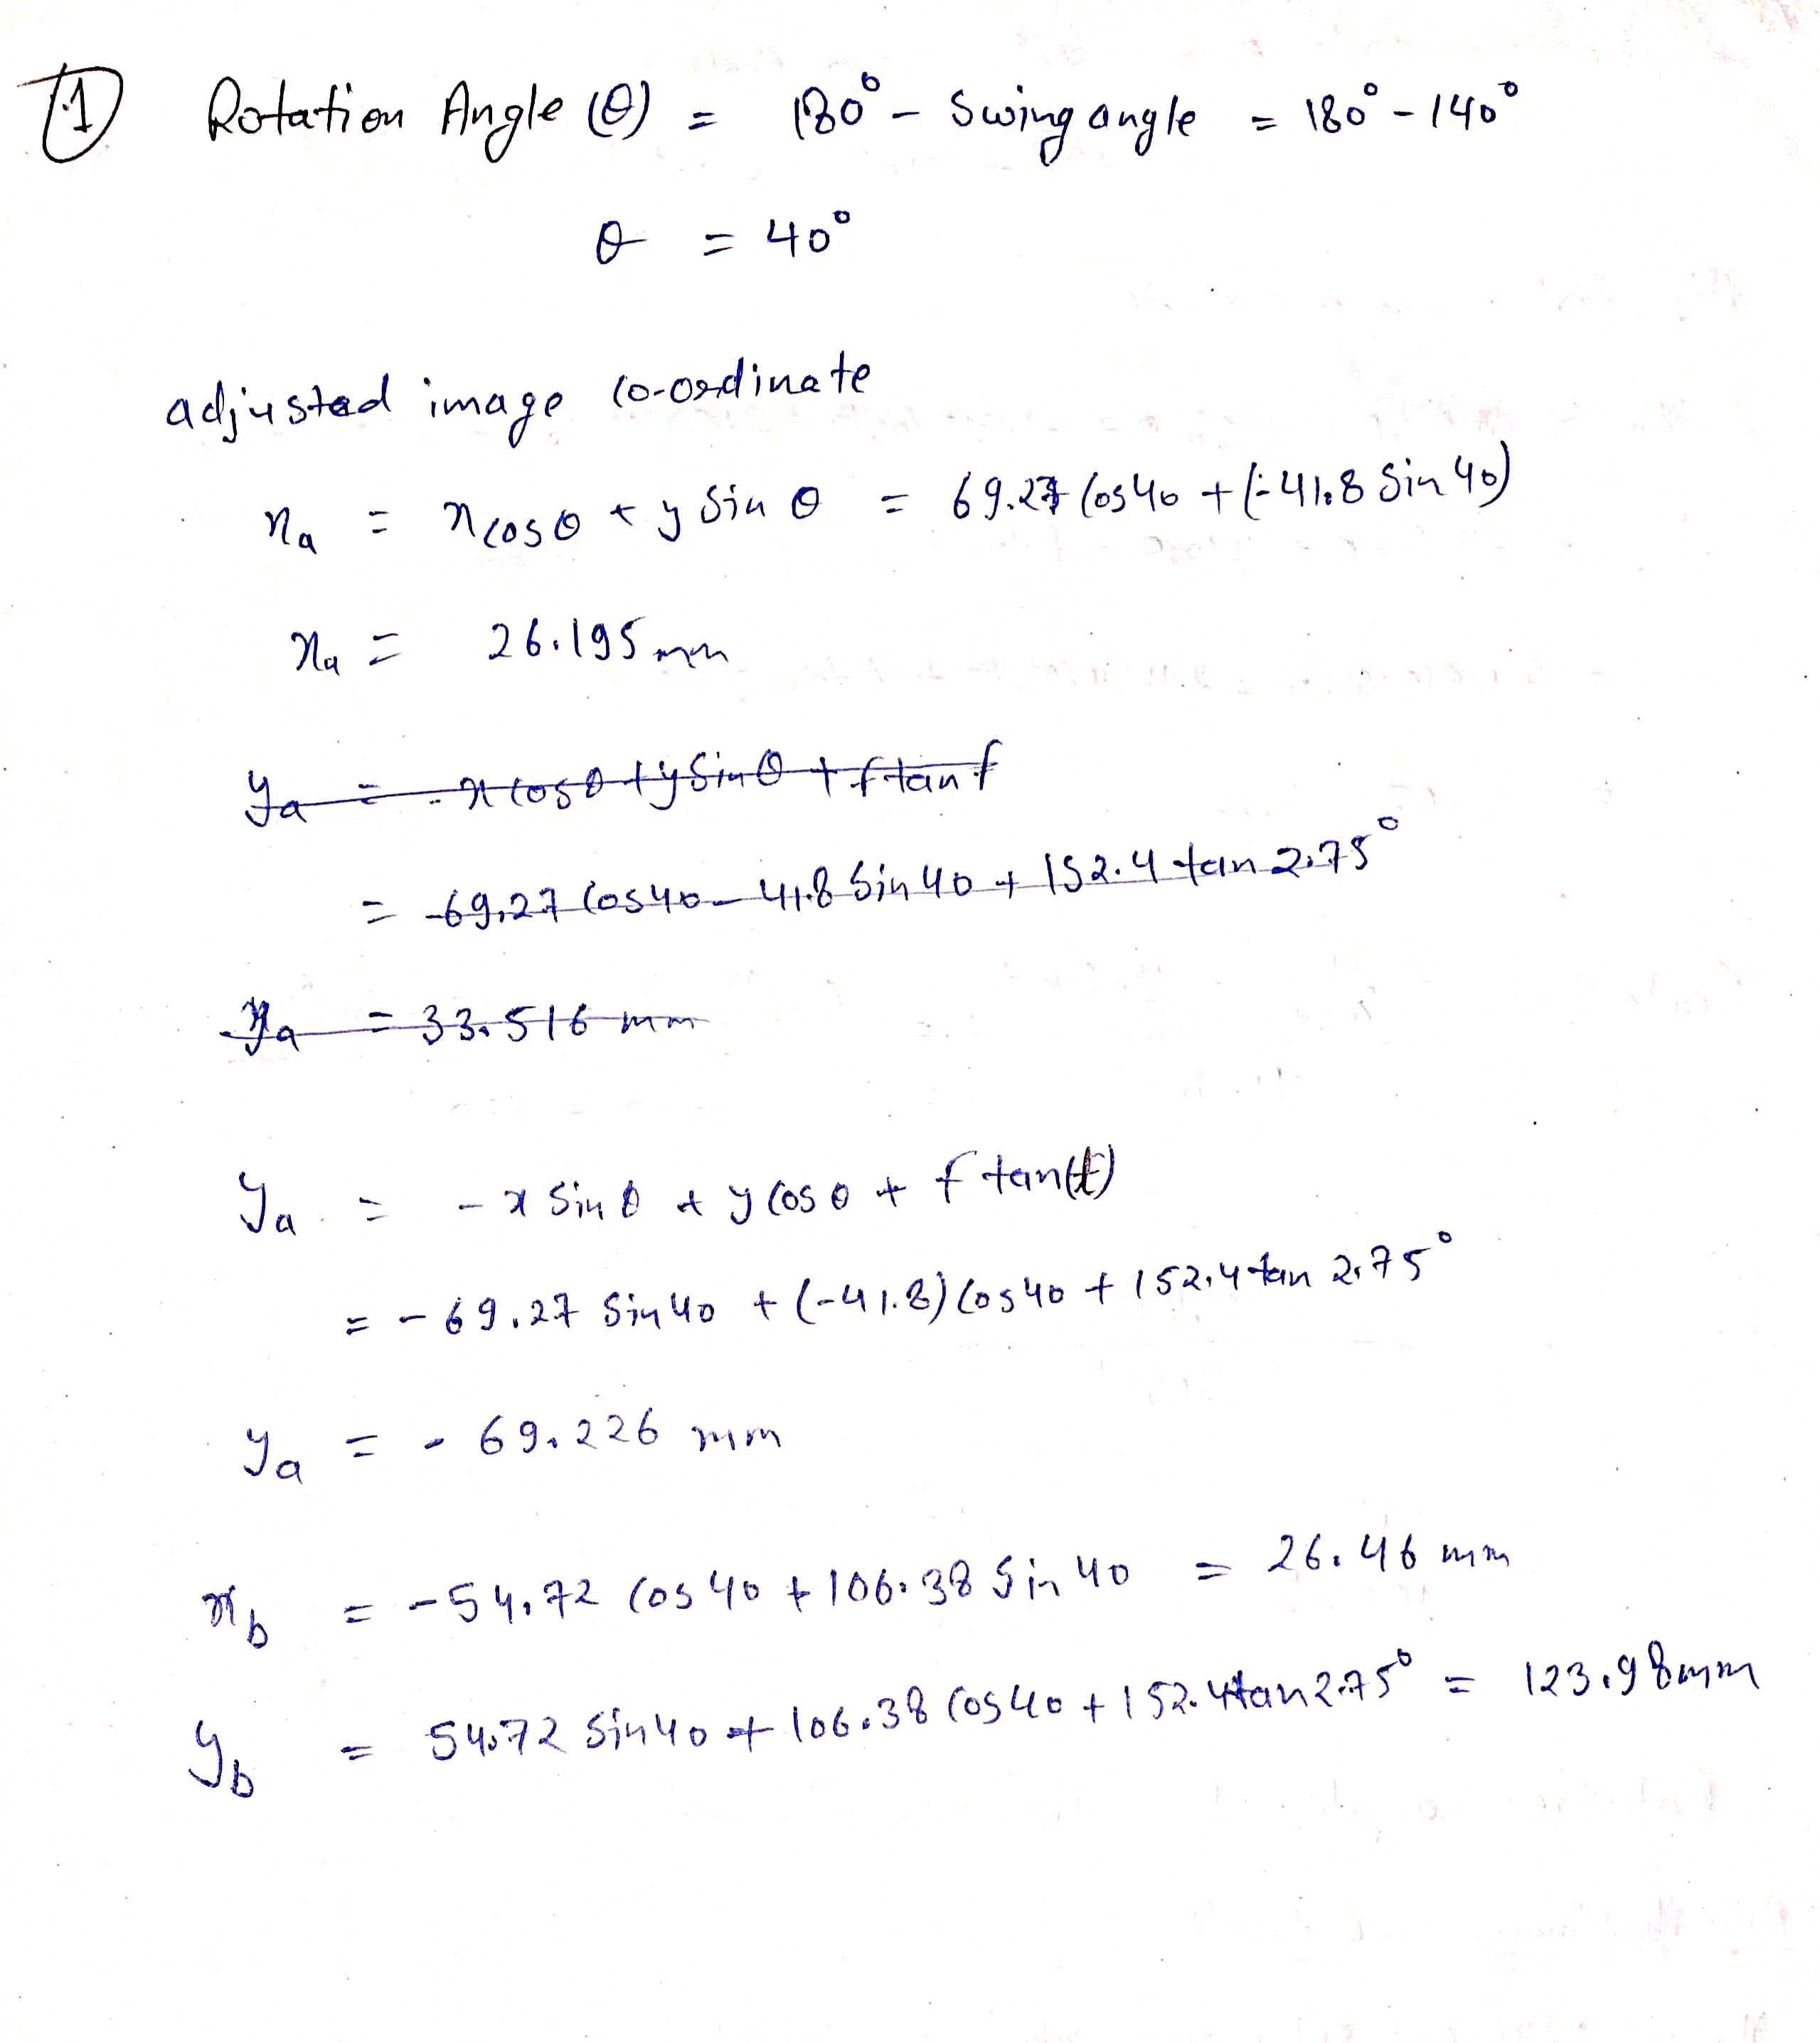 ① Rotation Angle (θ) = 180° - Swing angle = 180° - 140°
θ = 40°
adjusted image co-ordinate
xa = x cosθ + y Sin θ = 69.27 Cos40 + (-41.8 Sin 40)
xa = 26.195 mm
ya = - x cosθ + y Sinθ + f tan t
= -69.27 Cos40 - 41.8 Sin 40 + 152.4 tan 2.75°
ya = 33.516 mm
ya = - x Sin θ + y Cos θ + f tan(t)
= - 69.27 Sin40 + (-41.8) Cos40 + 152.4 tan 2.75°
ya = - 69.226 mm
xb = -54.72 Cos 40 + 106.38 Sin 40 = 26.46 mm
yb = 54.72 Sin40 + 106.38 Cos40 + 152.4 tan 2.75° = 123.98mm